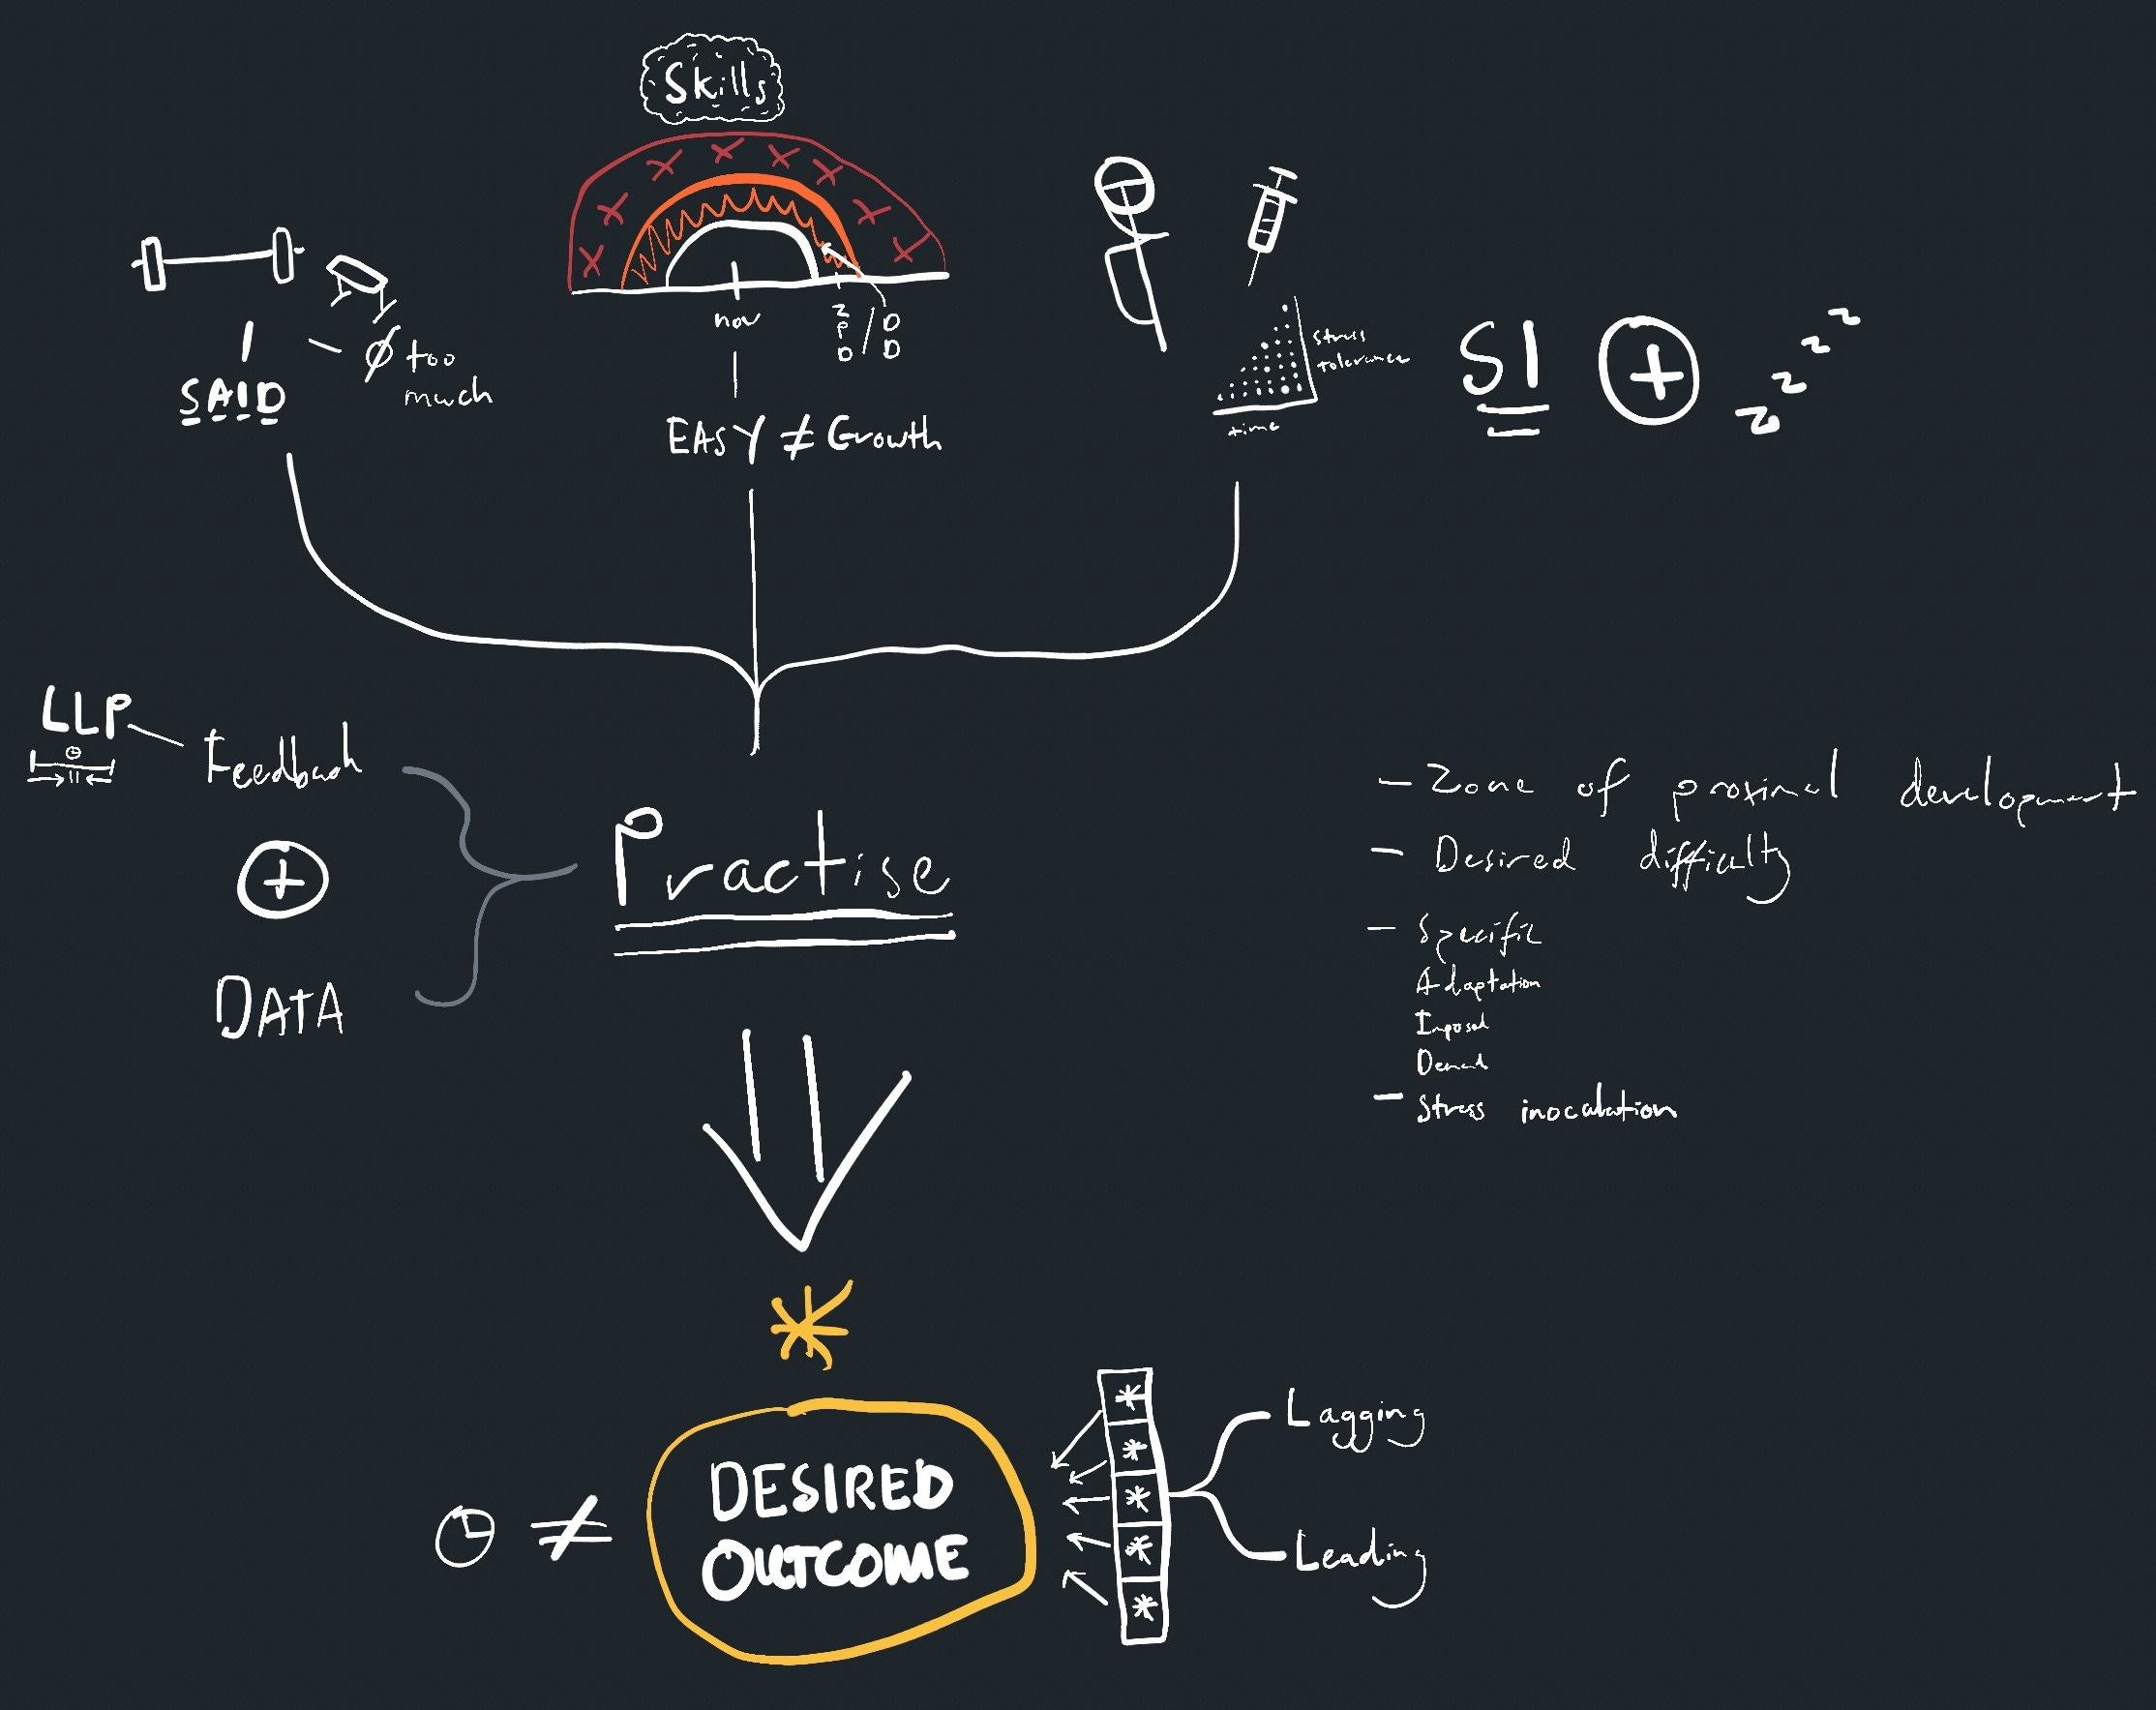 Skills
SAID
Ø too
much
now
ZPD / DD
EASY ≠ Growth
stress
tolerance
time
SI + z z z z
LLP
Feedback
+
DATA
Practise
- Zone of proximal development
- Desired difficulty
- Specific
Adaptation
Imposed
Demand
- Stress inoculation
*
≠ DESIRED
OUTCOME
*
*
*
*
*
Lagging
Leading